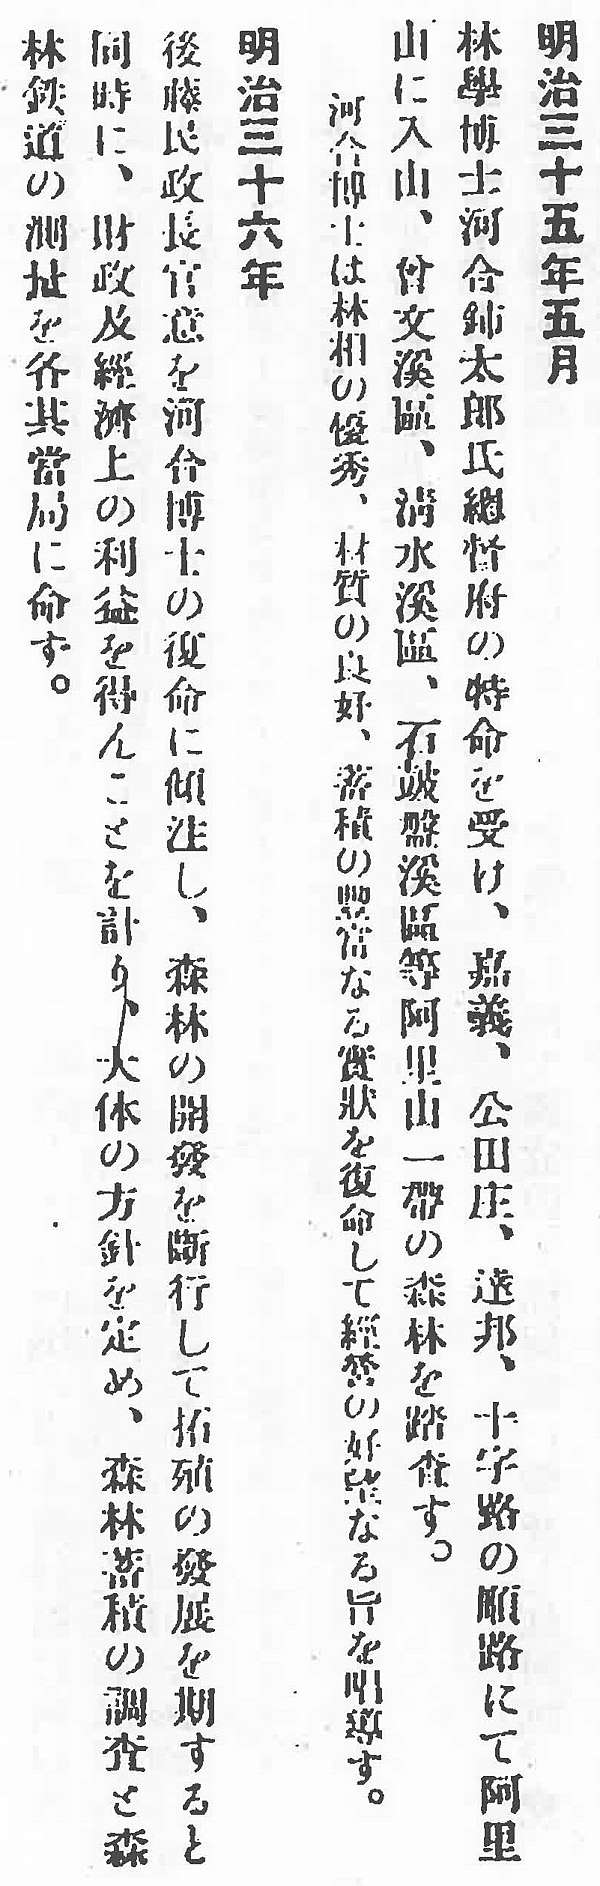 明治三十五年五月
林學博士河合鈰太郎氏總督府の特命を受け、嘉義、公田庄、達邦、十字路の順路にて阿里
山に入山、曾文溪區、淸水溪區、石皷盤溪區等阿里山一帶の森林を踏査す。
河合博士は林相の優秀、材質の良好、蓄積の豐富なる實狀を復命して經營の好望なる旨を唱導す。
明治三十六年
後藤民政長官意を河合博士の復命に傾注し、森林の開發を斷行して拓殖の發展を期すると
同時に、財政及經濟上の利益を得んことを計り、大体の方針を定め、森林蓄積の調査と森
林鉄道の測址を各其當局に命ず。